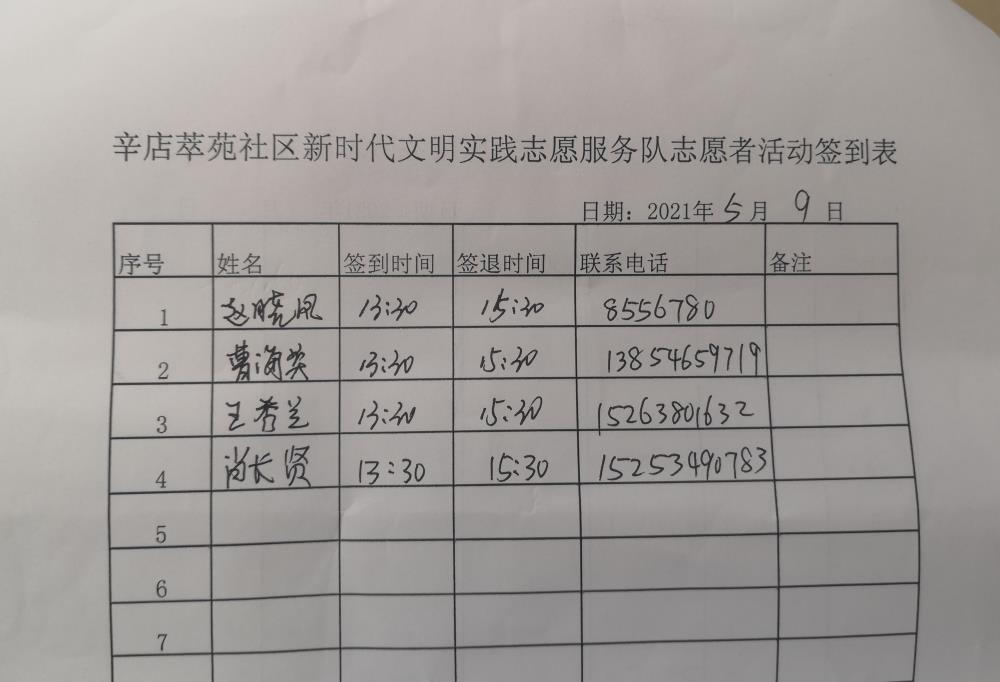 辛店萃苑社区新时代文明实践志愿服务队志愿者活动签到表
日期：2021年 5 月 9 日
序号 姓名 签到时间 签退时间 联系电话 备注
1 赵晓凤 13:30 15:30 8556780
2 曹海英 13:30 15:30 13854659719
3 王秀兰 13:30 15:30 15263801632
4 尚长贤 13:30 15:30 15253490783
5
6
7